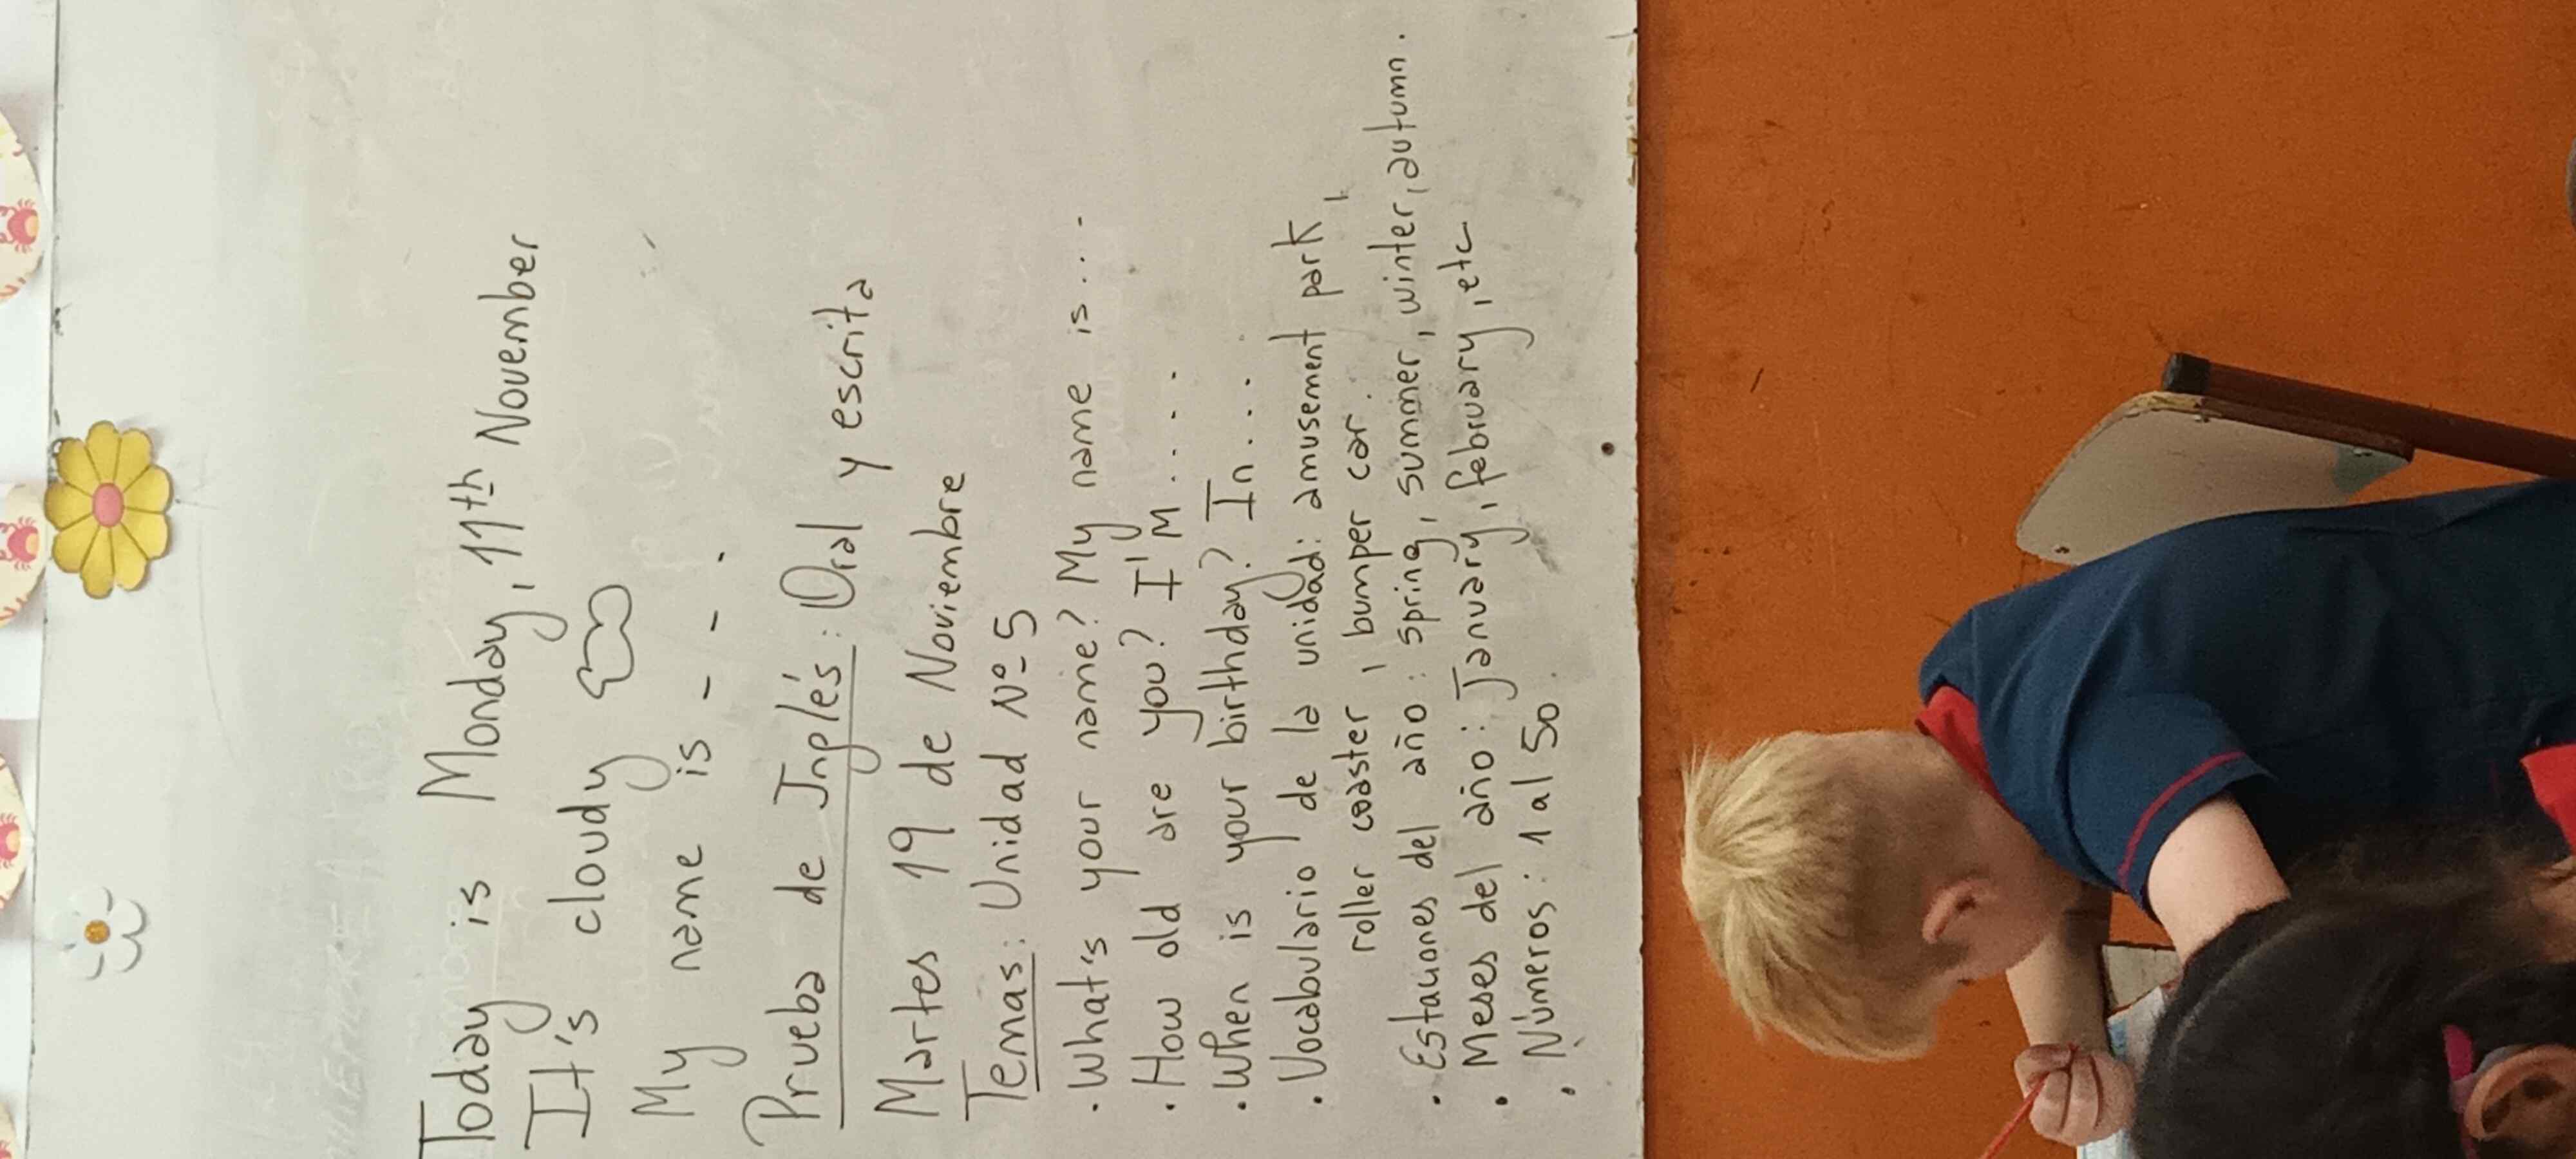 Today is Monday, 11th November
It's cloudy
My name is - - - .
Prueba de Inglés: Oral y escrita
Martes 19 de Noviembre
Temas: Unidad Nº 5
. What's your name? My name is....
. How old are you? I'M.....
. When is your birthday? In....
. Vocabulario de la unidad: amusement park,
roller coaster, bumper car.
. Estaciones del año: spring, summer, winter, autumn.
. Meses del año: January, february, etc
. Números: 1 al 50.